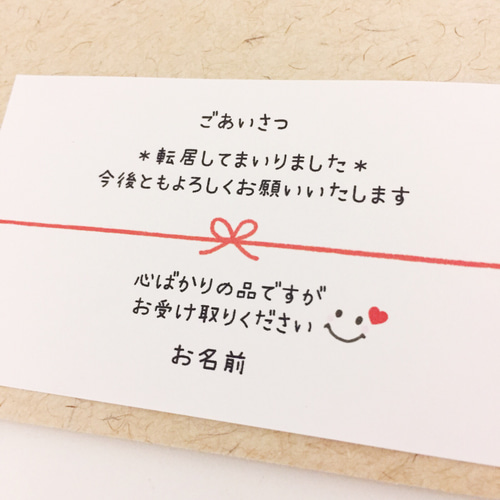 ごあいさつ
＊転居してまいりました＊
今後ともよろしくお願いいたします
心ばかりの品ですが
お受け取りください
お名前